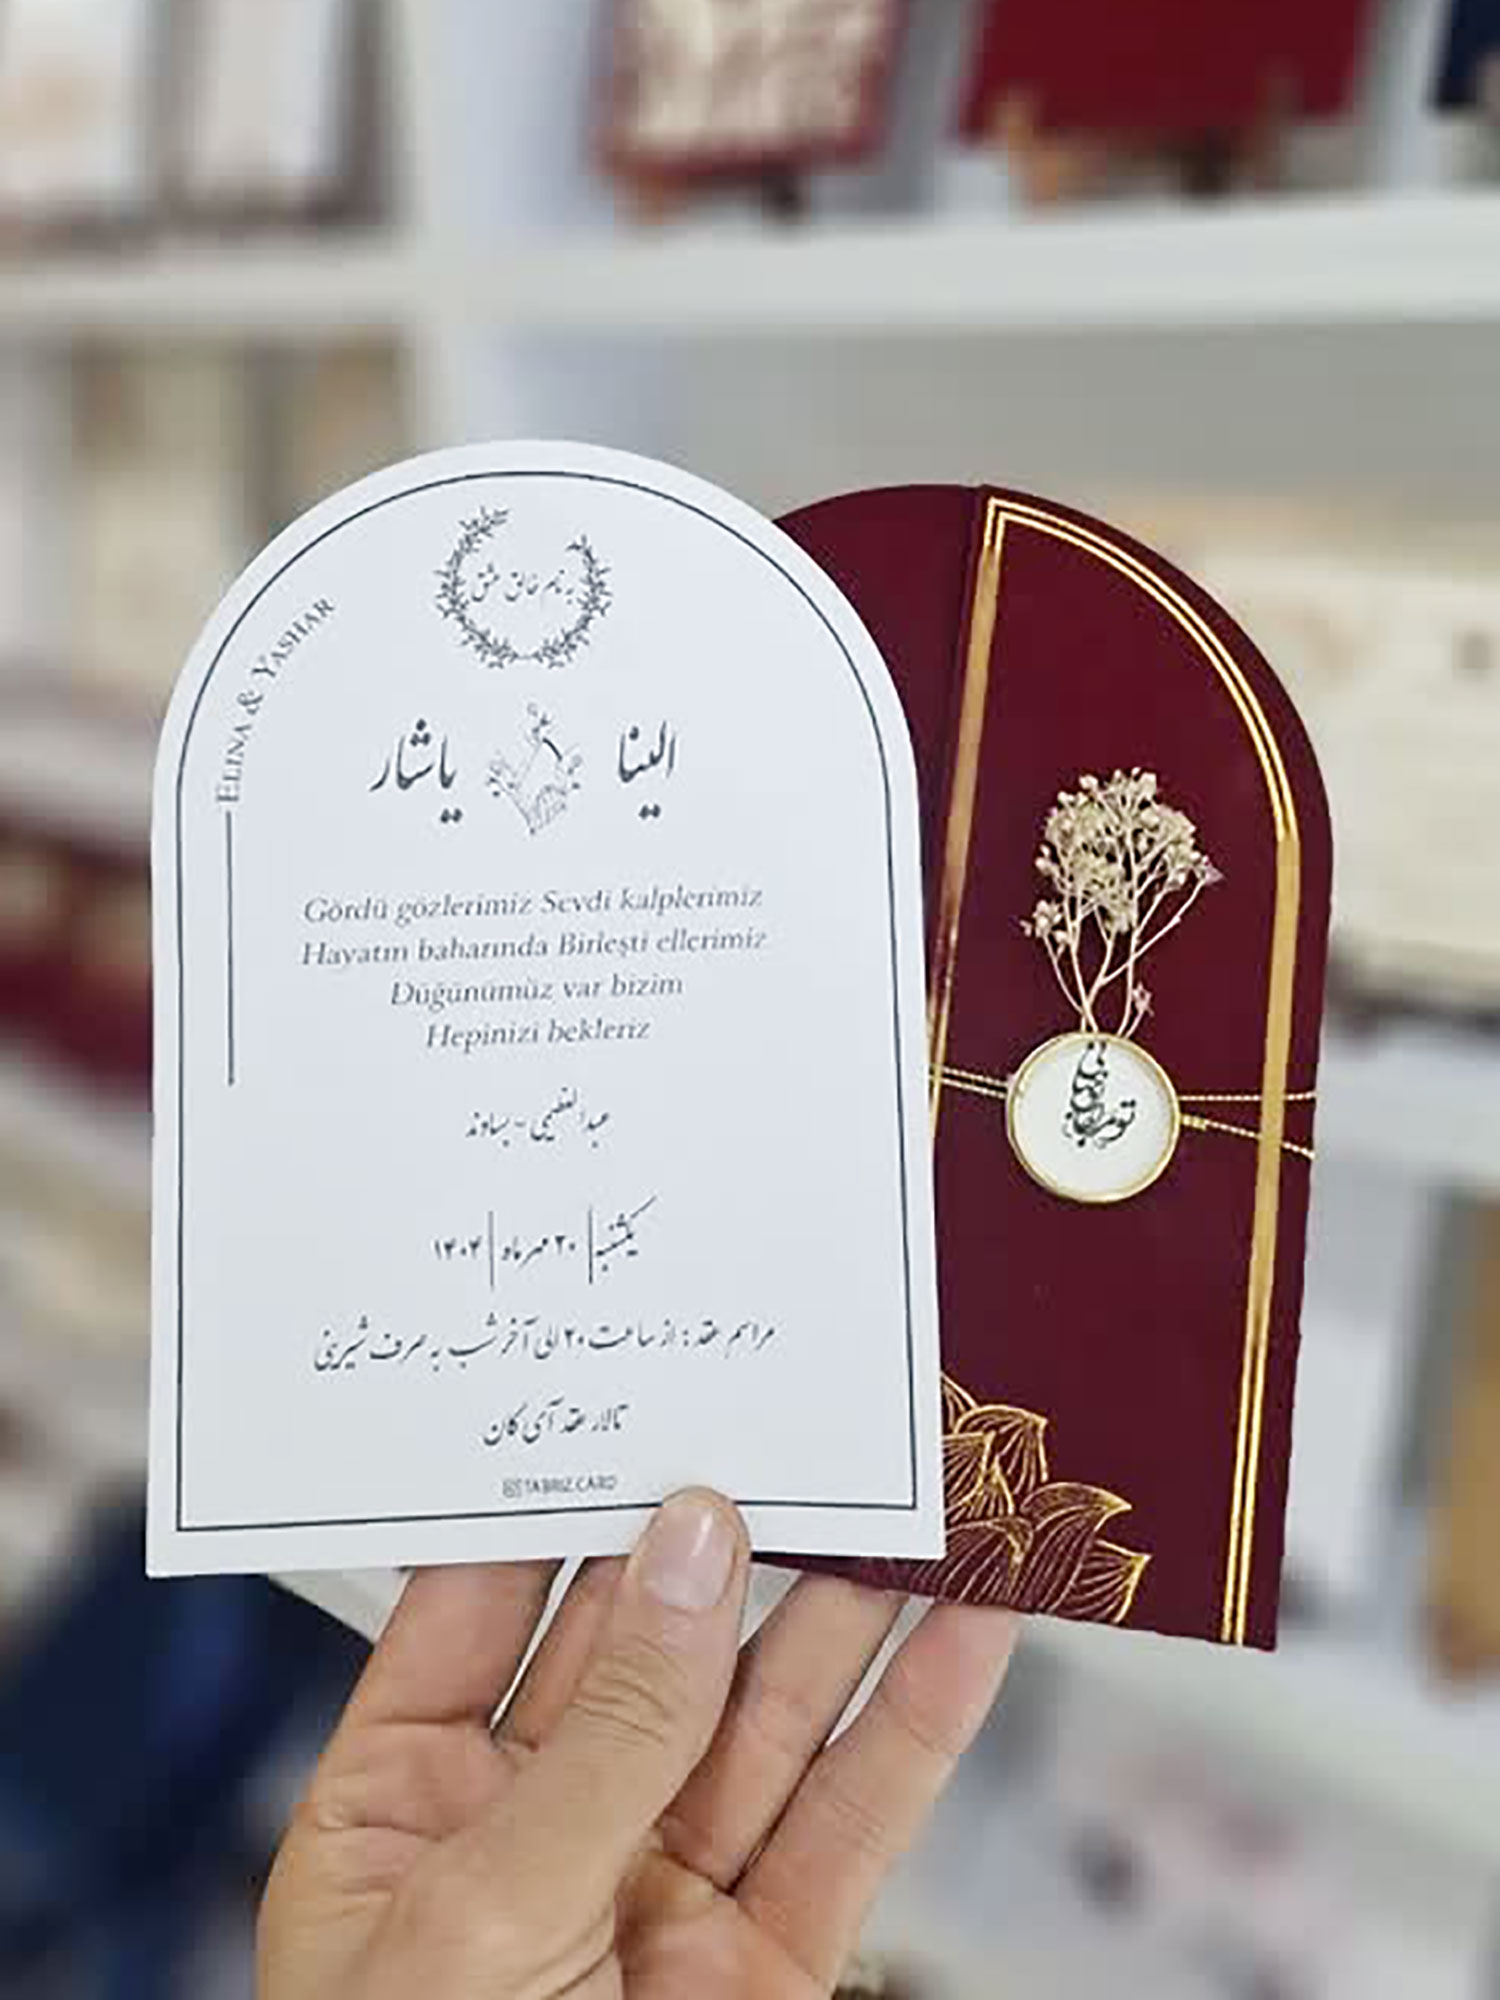 به نام خالق عشق
ELINA & YASHAR
الینا یاشار
Gördü gözlerimiz Sevdi kalplerimiz
Hayatın baharında Birleşti ellerimiz
Düğünümüz var bizim
Hepinizi bekleriz
عبدالعظیمی - بساوند
یکشنبه | ۲۰ مهر ماه | ۱۴۰۴
مراسم عقد : از ساعت ۲۰ الی آخر شب به صرف شیرینی
تالار عقد آی کان
TABRIZ.CARD